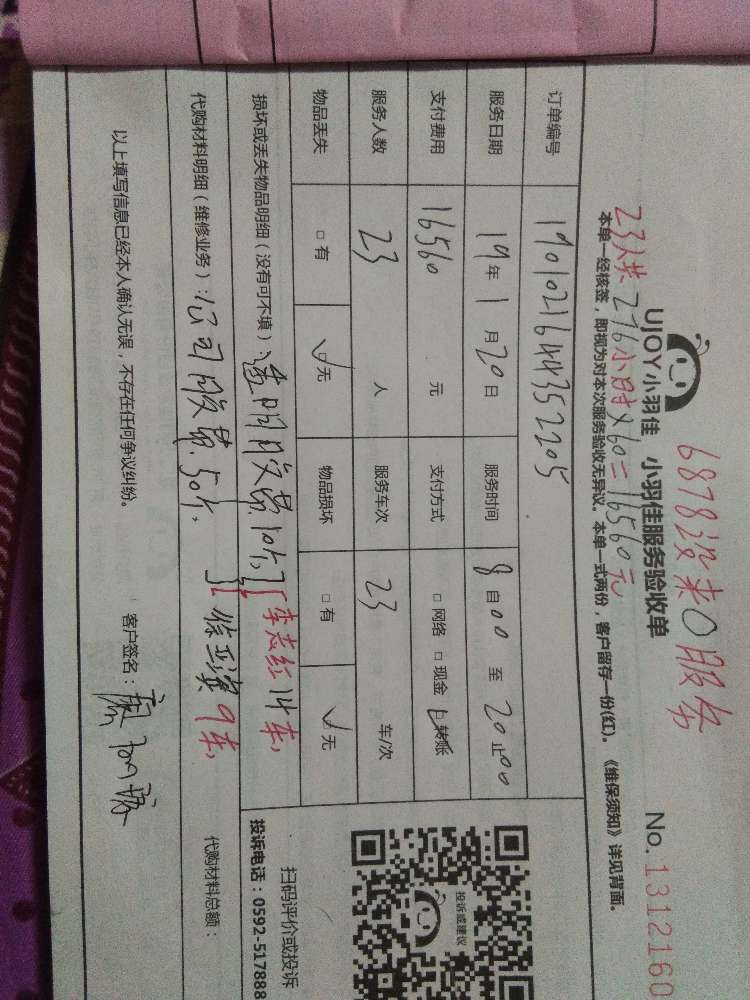 6878没来0服务
UJOY小羽佳 小羽佳服务验收单 No.1312160
23人共276小时×60=16560元
本单一经核签，即视为对本次服务验收无异议。本单一式两份，客户留存一份(红)。《维保须知》详见背面。
订单编号 1901021644352205
服务日期 19年1月20日 服务时间 8自00至20止00
支付费用 16560 元 支付方式 □网络 □现金 ☑转账
服务人数 23 人 服务车次 23 车/次
物品丢失 □有 ☑无 物品损坏 □有 ☑无
损坏或丢失物品明细（没有可不填） 透明胶带10个, 李志红14来,
代购材料明细（维修业务）: 公司胶带.50个, 9来, 代购材料总额：
以上填写信息已经本人确认无误，不存在任何争议纠纷。 客户签名：
投诉或建议
扫码评价或投诉
投诉电话：0592-517888